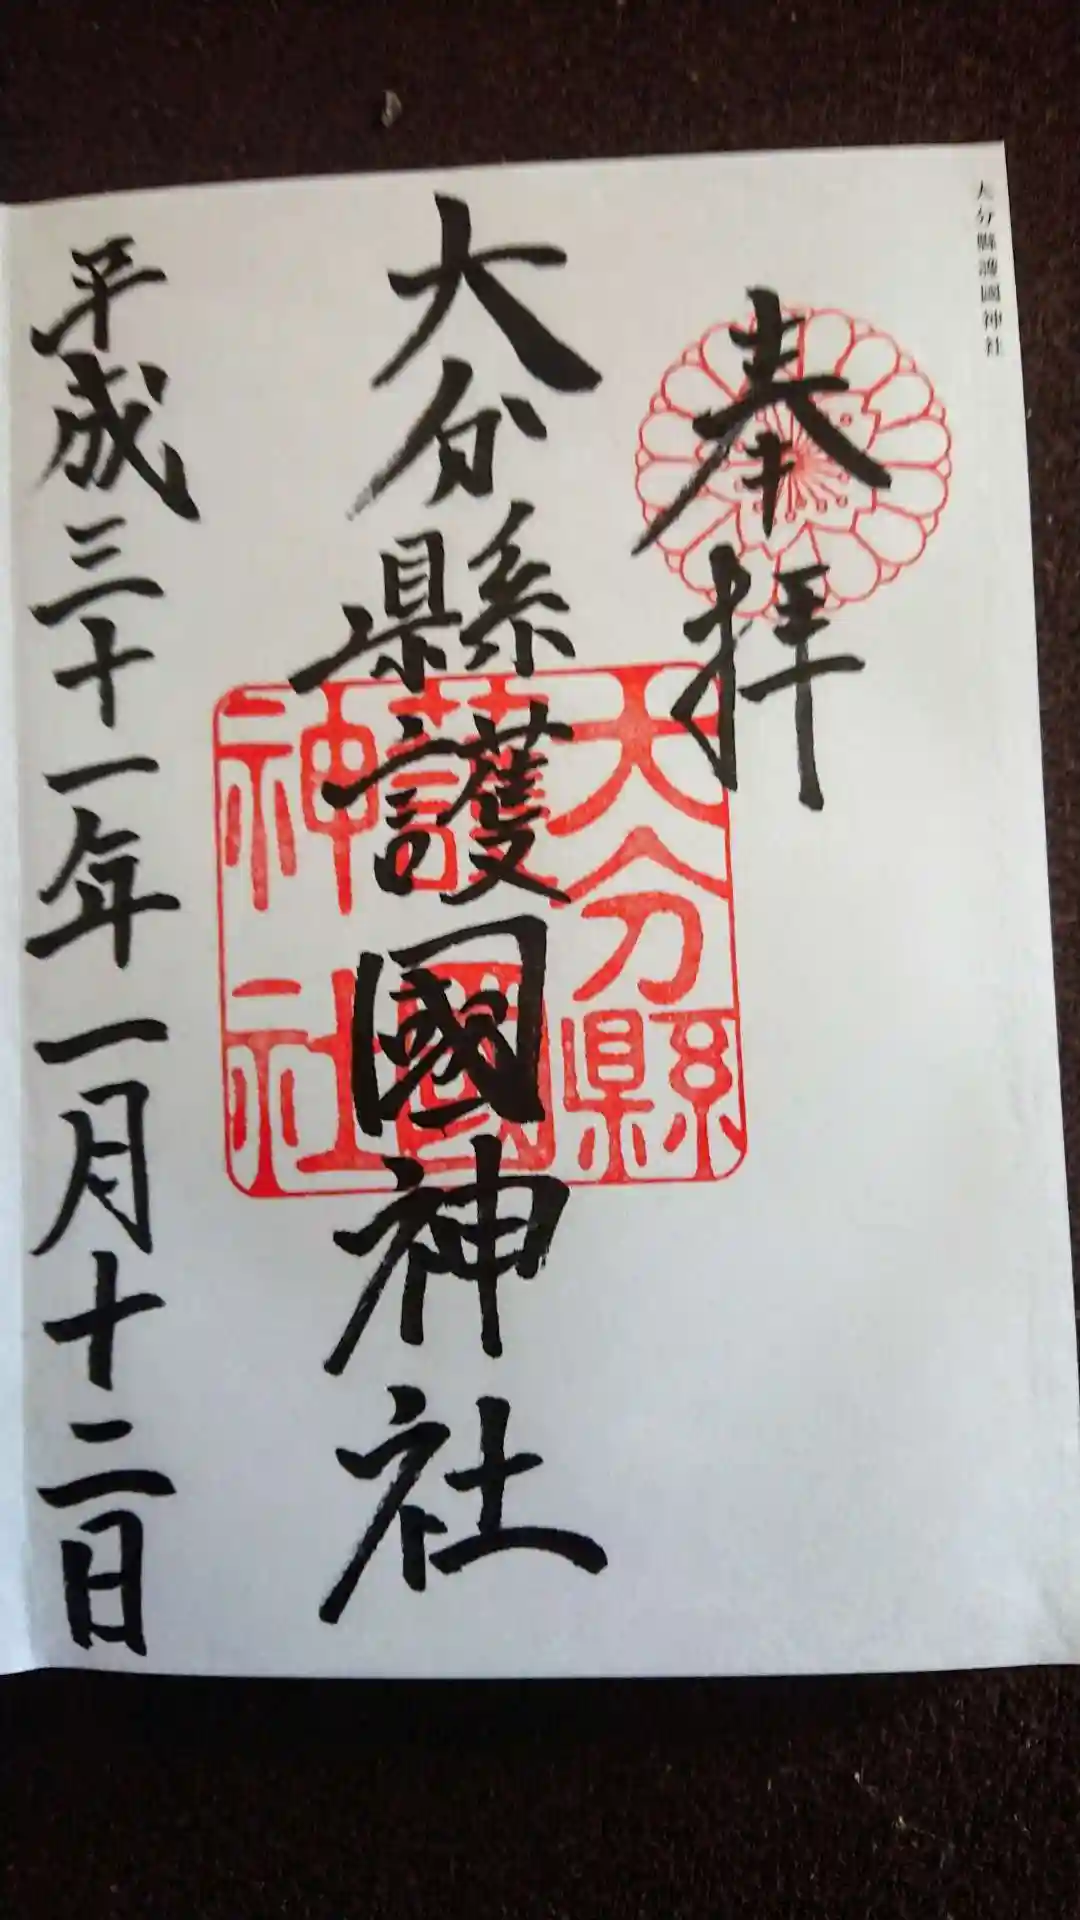 大分縣護國神社
奉拝
大分縣護國神社
大分縣
護國
神社
平成三十一年一月十二日